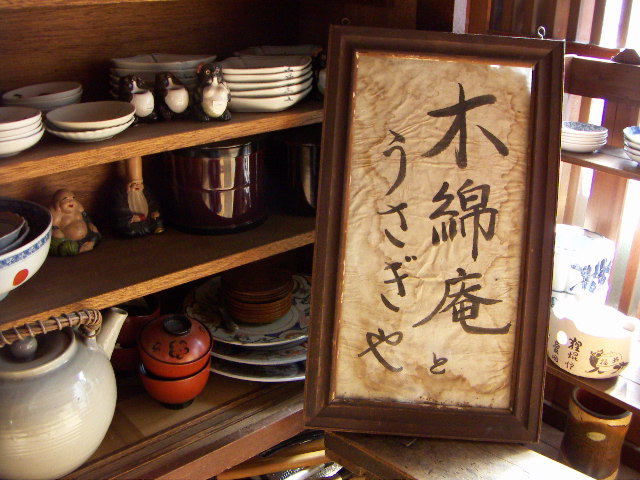 木綿庵と
うさぎや